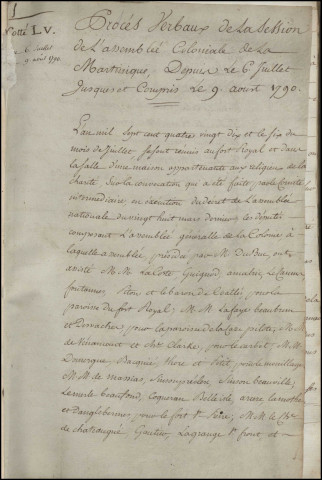 Cotté LV.
6 Juillet
9 aout 1790.
Procès Verbaux de La Session
de L'assemblée Coloniale de La
Martinique, Depuis le 6 Juillet
Jusques et Compris le 9 aoust 1790.
L'an mil sept cent quatre vingt dix et le six du
mois de Juillet, se sont réunis au fort Royal et dans
la salle d'une maison appartenante aux religieux de la
charité sur la convocation qui a été faite par le Comité
intermédiaire, en exécution du décret de L'assemblée
nationale du vingt huit mars dernier les députés
composant L'assemblée générale de La Colonie à
laquelle assemblée, présidée par M. DuBuc, ont
assisté M.M. La Cote Guignod
fontanne, et le baron de pour la
paroisse du fort Royal; M.M. Lafaye beaubrun
et Desvacher, pour la paroisse de la case pilote; M.M.
de et Clarke, pour le carbet; M.M.
Dauvergne et Petit, pour le mouillage
M.M. de
Lemerle beaufond, Coqueran Belleisle, la mothe
et pour le fort St. Pierre; M.M. le
de chateaugué, Gautier, Lagrange et